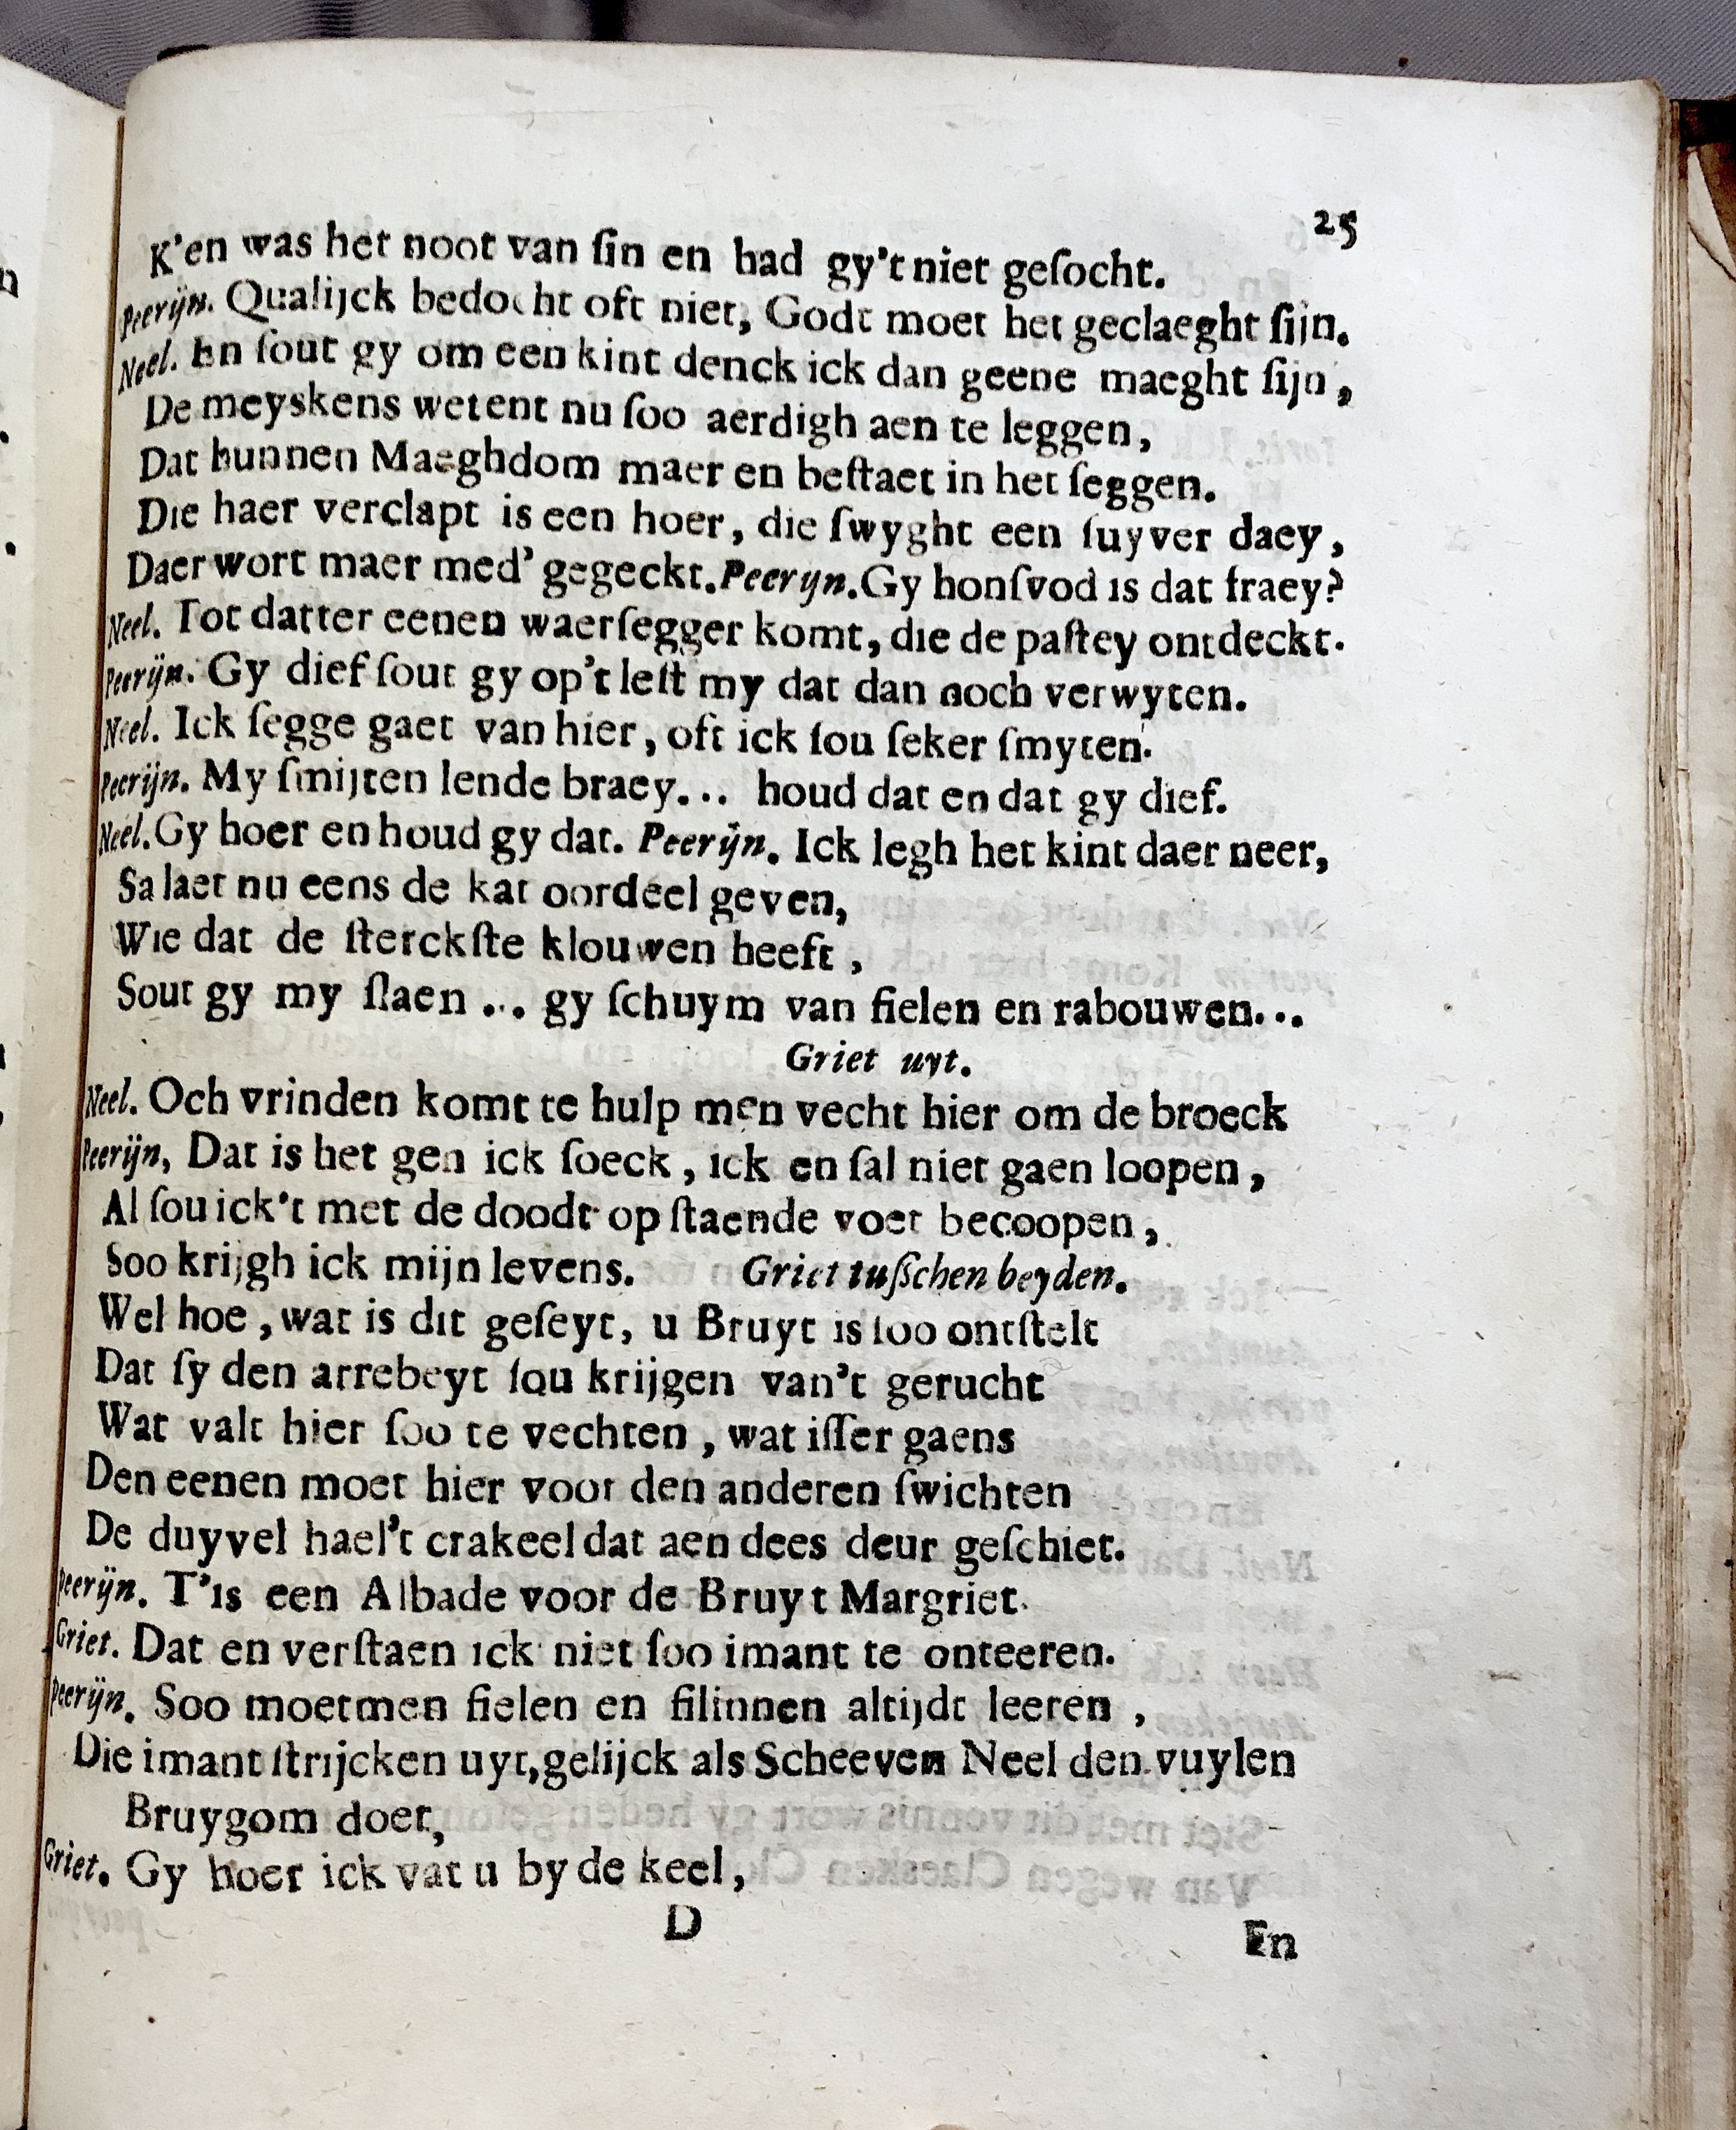 25
K'en was het noot van ſin en had gy't niet geſocht.
Peerijn. Qualijck bedocht oft niet, Godt moet het geclaeght ſijn.
Neel. En ſout gy om een kint denck ick dan geene maeght ſijn,
De meyskens wetent nu ſoo aerdigh aen te leggen,
Dat hunnen Maeghdom maer en beſtaet in het ſeggen.
Die haer verclapt is een hoer, die ſwyght een ſuyver daey,
Daer wort maer med' gegeckt. Peerijn. Gy honſvod is dat fraey?
Neel. Tot datter eenen waerſegger komt, die de paſtey ontdeckt.
Peerijn. Gy dief ſout gy op't leſt my dat dan noch verwyten.
Neel. Ick ſegge gaet van hier, oft ick ſou ſeker ſmyten.
Peerijn. My ſmijten lende braey... houd dat en dat gy dief.
Neel. Gy hoer en houd gy dat. Peerijn. Ick legh het kint daer neer,
Sa laet nu eens de kat oordeel geven,
Wie dat de ſterckſte klouwen heeft,
Sout gy my ſlaen ... gy ſchuym van fielen en rabouwen...
Griet uyt.
Neel. Och vrinden komt te hulp men vecht hier om de broeck
Peerijn, Dat is het gen ick ſoeck, ick en ſal niet gaen loopen,
Al ſou ick't met de doodt op ſtaende voet becoopen,
Soo krijgh ick mijn levens. Griet tuſſchen beyden.
Wel hoe, wat is dit geſeyt, u Bruyt is ſoo ontſtelt
Dat ſy den arrebeyt ſou krijgen van't gerucht
Wat valt hier ſoo te vechten, wat iſſer gaens
Den eenen moet hier voor den anderen ſwichten
De duyvel hael't crakeel dat aen dees deur geſchiet.
Peerijn. T'is een Albade voor de Bruyt Margriet.
Griet. Dat en verſtaen ick niet ſoo imant te onteeren.
Peerijn. Soo moetmen fielen en filinnen altijdt leeren,
Die imant ſtrijcken uyt, gelijck als Scheeven Neel den vuylen
Bruygom doet,
Griet. Gy hoer ick vat u by de keel,
D
En